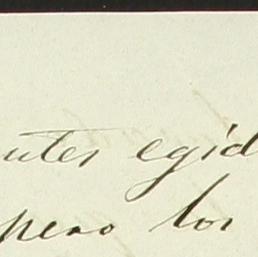 utes egid
pero los